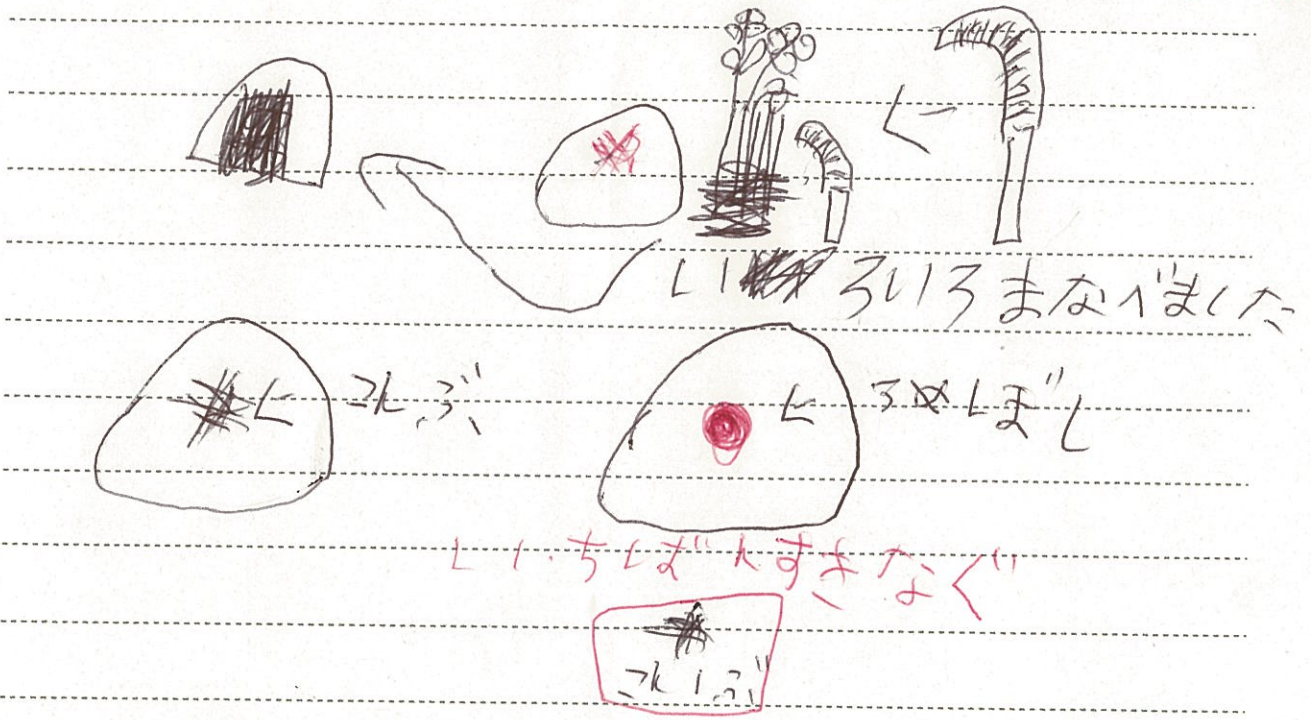 いろいろまなべました
こんぶ
うめぼし
いちばんすきなぐ
こんぶ